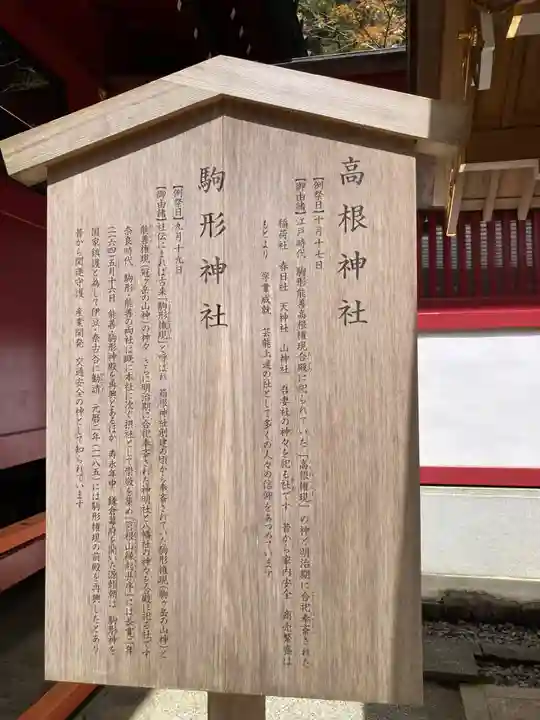 高根神社
【例祭日】十月十七日
【御由緒】江戸時代 駒形能善高根権現合殿に祀られていた「高根権現」の神と明治期に合祀奉斎された
稲荷社 春日社 天神社 山神社 吾妻社の神々を祀る社です 昔から家内安全 商売繁盛は
もとより 学業成就 芸能上達の社として多くの人々の信仰をあつめています
駒形神社
【例祭日】九月十九日
【御由緒】社伝にまれば古来「駒形権現」と呼ばれ 箱根神社創建の頃から奉斎されていた駒形権現(駒ヶ岳の山神)と
能善権現(冠ヶ岳の山神)の神々 さらに明治期に合祀奉斎された神明社と八幡社の神々を合殿に祀る社です
奈良時代 駒形・能善の両社は既に本社に次ぐ摂社として崇敬を集め『筥根山縁起并序』には長寛二年
(一一六四)五月十六日 能善・駒形神殿を再興とあるほか 寿永年中 鎌倉幕府を開いた源頼朝は 駒形神を
国家鎮護と為して伊豆・奈古谷に勧請 元暦二年(一一八五)には駒形権現の前殿を再興したとあり
昔から開運守護 産業開発 交通安全の神として知られています